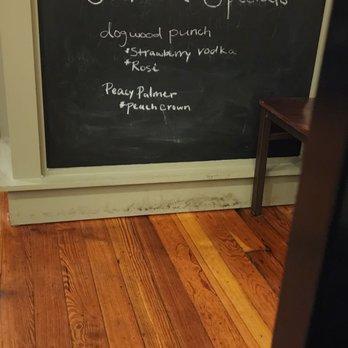 Specials
dogwood punch
*Strawberry vodka
*Rosé
Peacy Palmer
*peach crown